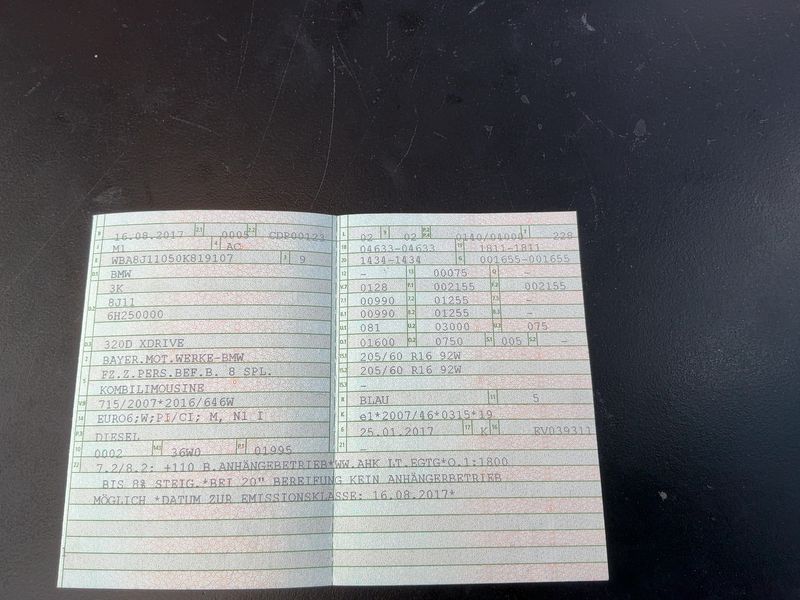 B 16.08.2017 2.1 0005 2.2 CDP00123
J M1 4 AC
E WBA8J11050K819107 3 9
D.1 BMW
3K
D.2 8J11
6H250000
D.3 320D XDRIVE
2 BAYER.MOT.WERKE-BMW
5 FZ.Z.PERS.BEF.B. 8 SPL.
KOMBILIMOUSINE
V.9 715/2007*2016/646W
14 EURO6;W;PI/CI; M, N1 I
P.3 DIESEL
10 0002 14.1 36W0 P.1 01995
L 02 9 02 P.2 P.4 0140/04000 T 228
18 04633-04633 19 1811-1811
20 1434-1434 G 001655-001655
12 - 13 00075 Q -
V.7 0128 F.1 002155 F.2 002155
7.1 00990 7.2 01255 7.3 -
8.1 00990 8.2 01255 8.3 -
U.1 081 U.2 03000 U.3 075
O.1 01600 O.2 0750 S.1 005 S.2 -
15.1 205/60 R16 92W
15.2 205/60 R16 92W
15.3 -
R BLAU 11 5
K e1*2007/46*0315*19
6 25.01.2017 17 K 16 EV039311
21 -
22 7.2/8.2: +110 B.ANHÄNGEBETRIEB*WW.AHK LT.EGTG*O.1:1800
BIS 8% STEIG.*BEI 20" BEREIFUNG KEIN ANHÄNGERBETRIEB
MÖGLICH *DATUM ZUR EMISSIONSKLASSE: 16.08.2017*